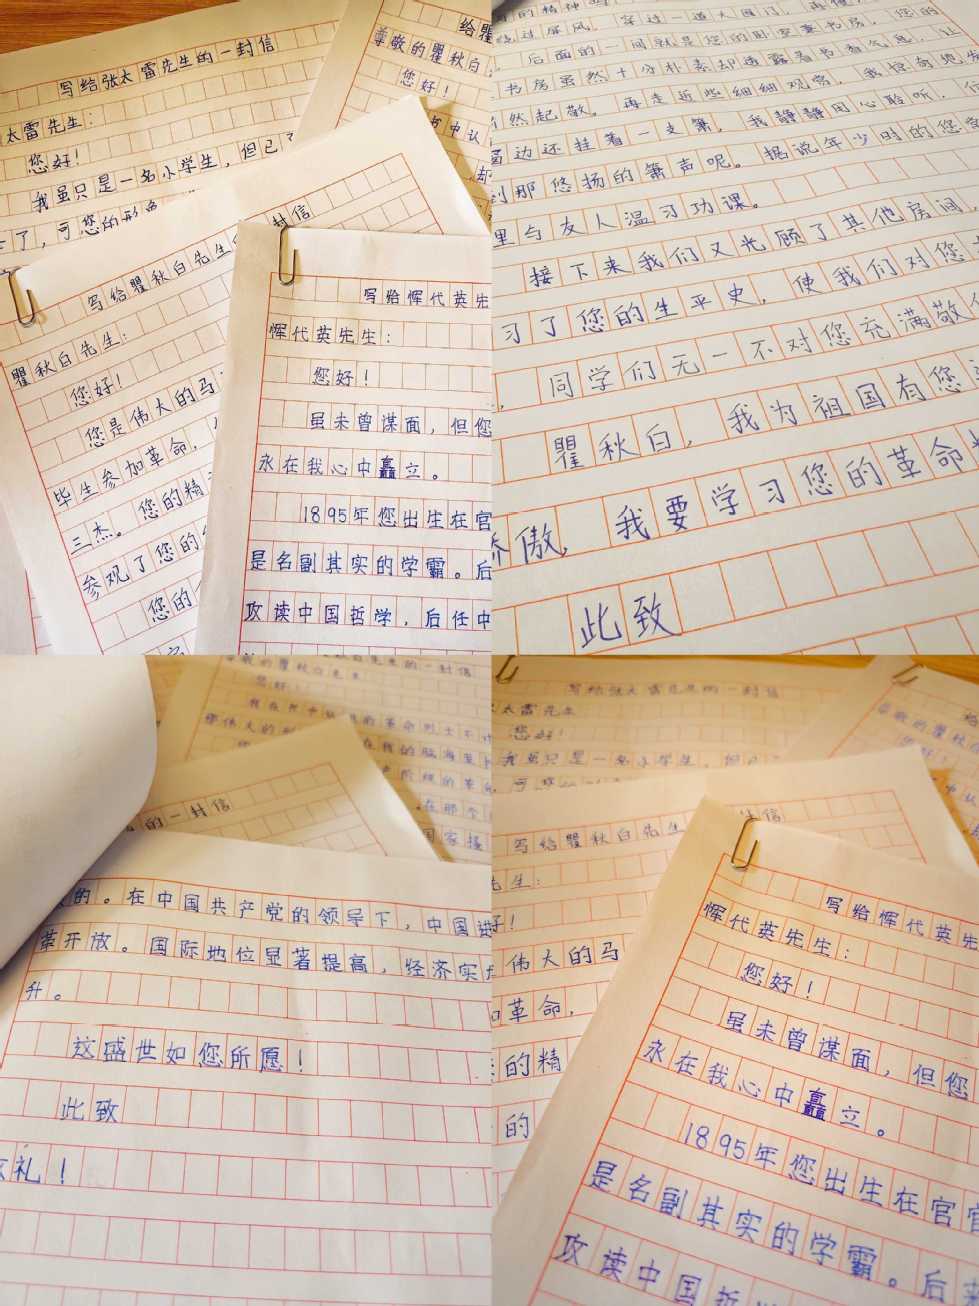 写给张太雷先生的一封信
太雷先生：
您好！
我虽只是一名小学生，但已
了，可您的形象
给瞿
尊敬的瞿秋白
您好！
书中认
写给瞿秋白先生 封信
瞿秋白先生：
您好！
您是伟大的马
毕生参加革命，
三杰。您的精
参观了您的
您的
写给恽代英先
恽代英先生：
您好！
虽未曾谋面，但您
永在我心中矗立。
1895年您出生在官
是名副其实的学霸。后
攻读中国哲学，后任中
绕过屏风，穿过一道大圆门，再
后面的一间就是您的卧室兼书房，您的
书房虽然十分朴素却透露着书香气息，让
然起敬。再走近些细细观赏，我惊奇地发
边还挂着一支箫，我静静用心聆听，
到那悠扬的箫声呢。据说年少时的您
里与友人温习功课。
接下来我们又光顾了其他房间，
习了您的生平史，使我们对您
同学们无一不对您充满敬
瞿秋白，我为祖国有您
骄傲，我要学习您的革命
此致
尊敬的瞿秋白先生的一封信
您好！
的一封信
国家接
的。在中国共产党的领导下，中国进
革开放。国际地位显著提高，经济实力
升。
这盛世如您所愿！
此致
敬礼！
写给张太雷先生的一封信
太雷先生
您好！
我虽只是一名小学生，但已
尊敬的瞿秋
写给瞿秋白先生 信
先生：
好！
伟大的马
革命，
的精
的
写给恽代英先
恽代英先生：
您好！
虽未曾谋面，但您
永在我心中矗立。
1895年您出生在官
是名副其实的学霸。后
攻读中国哲学